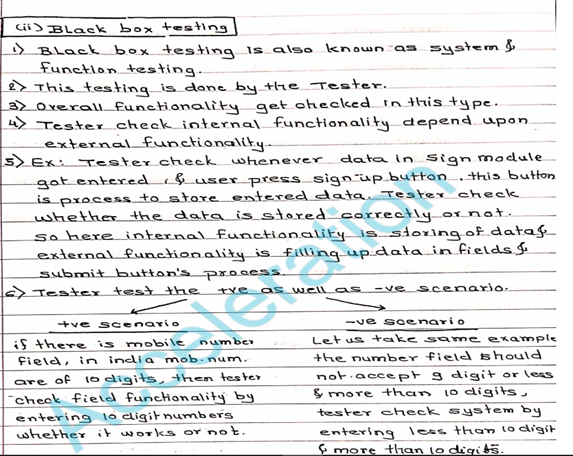 (ii) Black box testing
1) Black box testing is also known as system &
function testing.
2) This testing is done by the Tester.
3) Overall functionality get checked in this type.
4) Tester check internal functionality depend upon
external functionality.
5) Ex: Tester check whenever data in Sign module
got entered, & user press sign-up button, this button
is process to store entered data. Tester check
whether the data is stored correctly or not.
So here internal functionality is storing of data &
external functionality is filling up data in fields &
submit button's process.
6) Tester test the +ve as well as -ve scenario.
+ve scenario
if there is mobile number
field, in india mob. num.
are of 10 digits, then tester
check field functionality by
entering 10 digit numbers
whether it works or not.
-ve scenario
Let us take same example
the number field should
not accept 9 digit or less
& more than 10 digits,
tester check system by
entering less than 10 digit
& more than 10 digits.
Acceleration